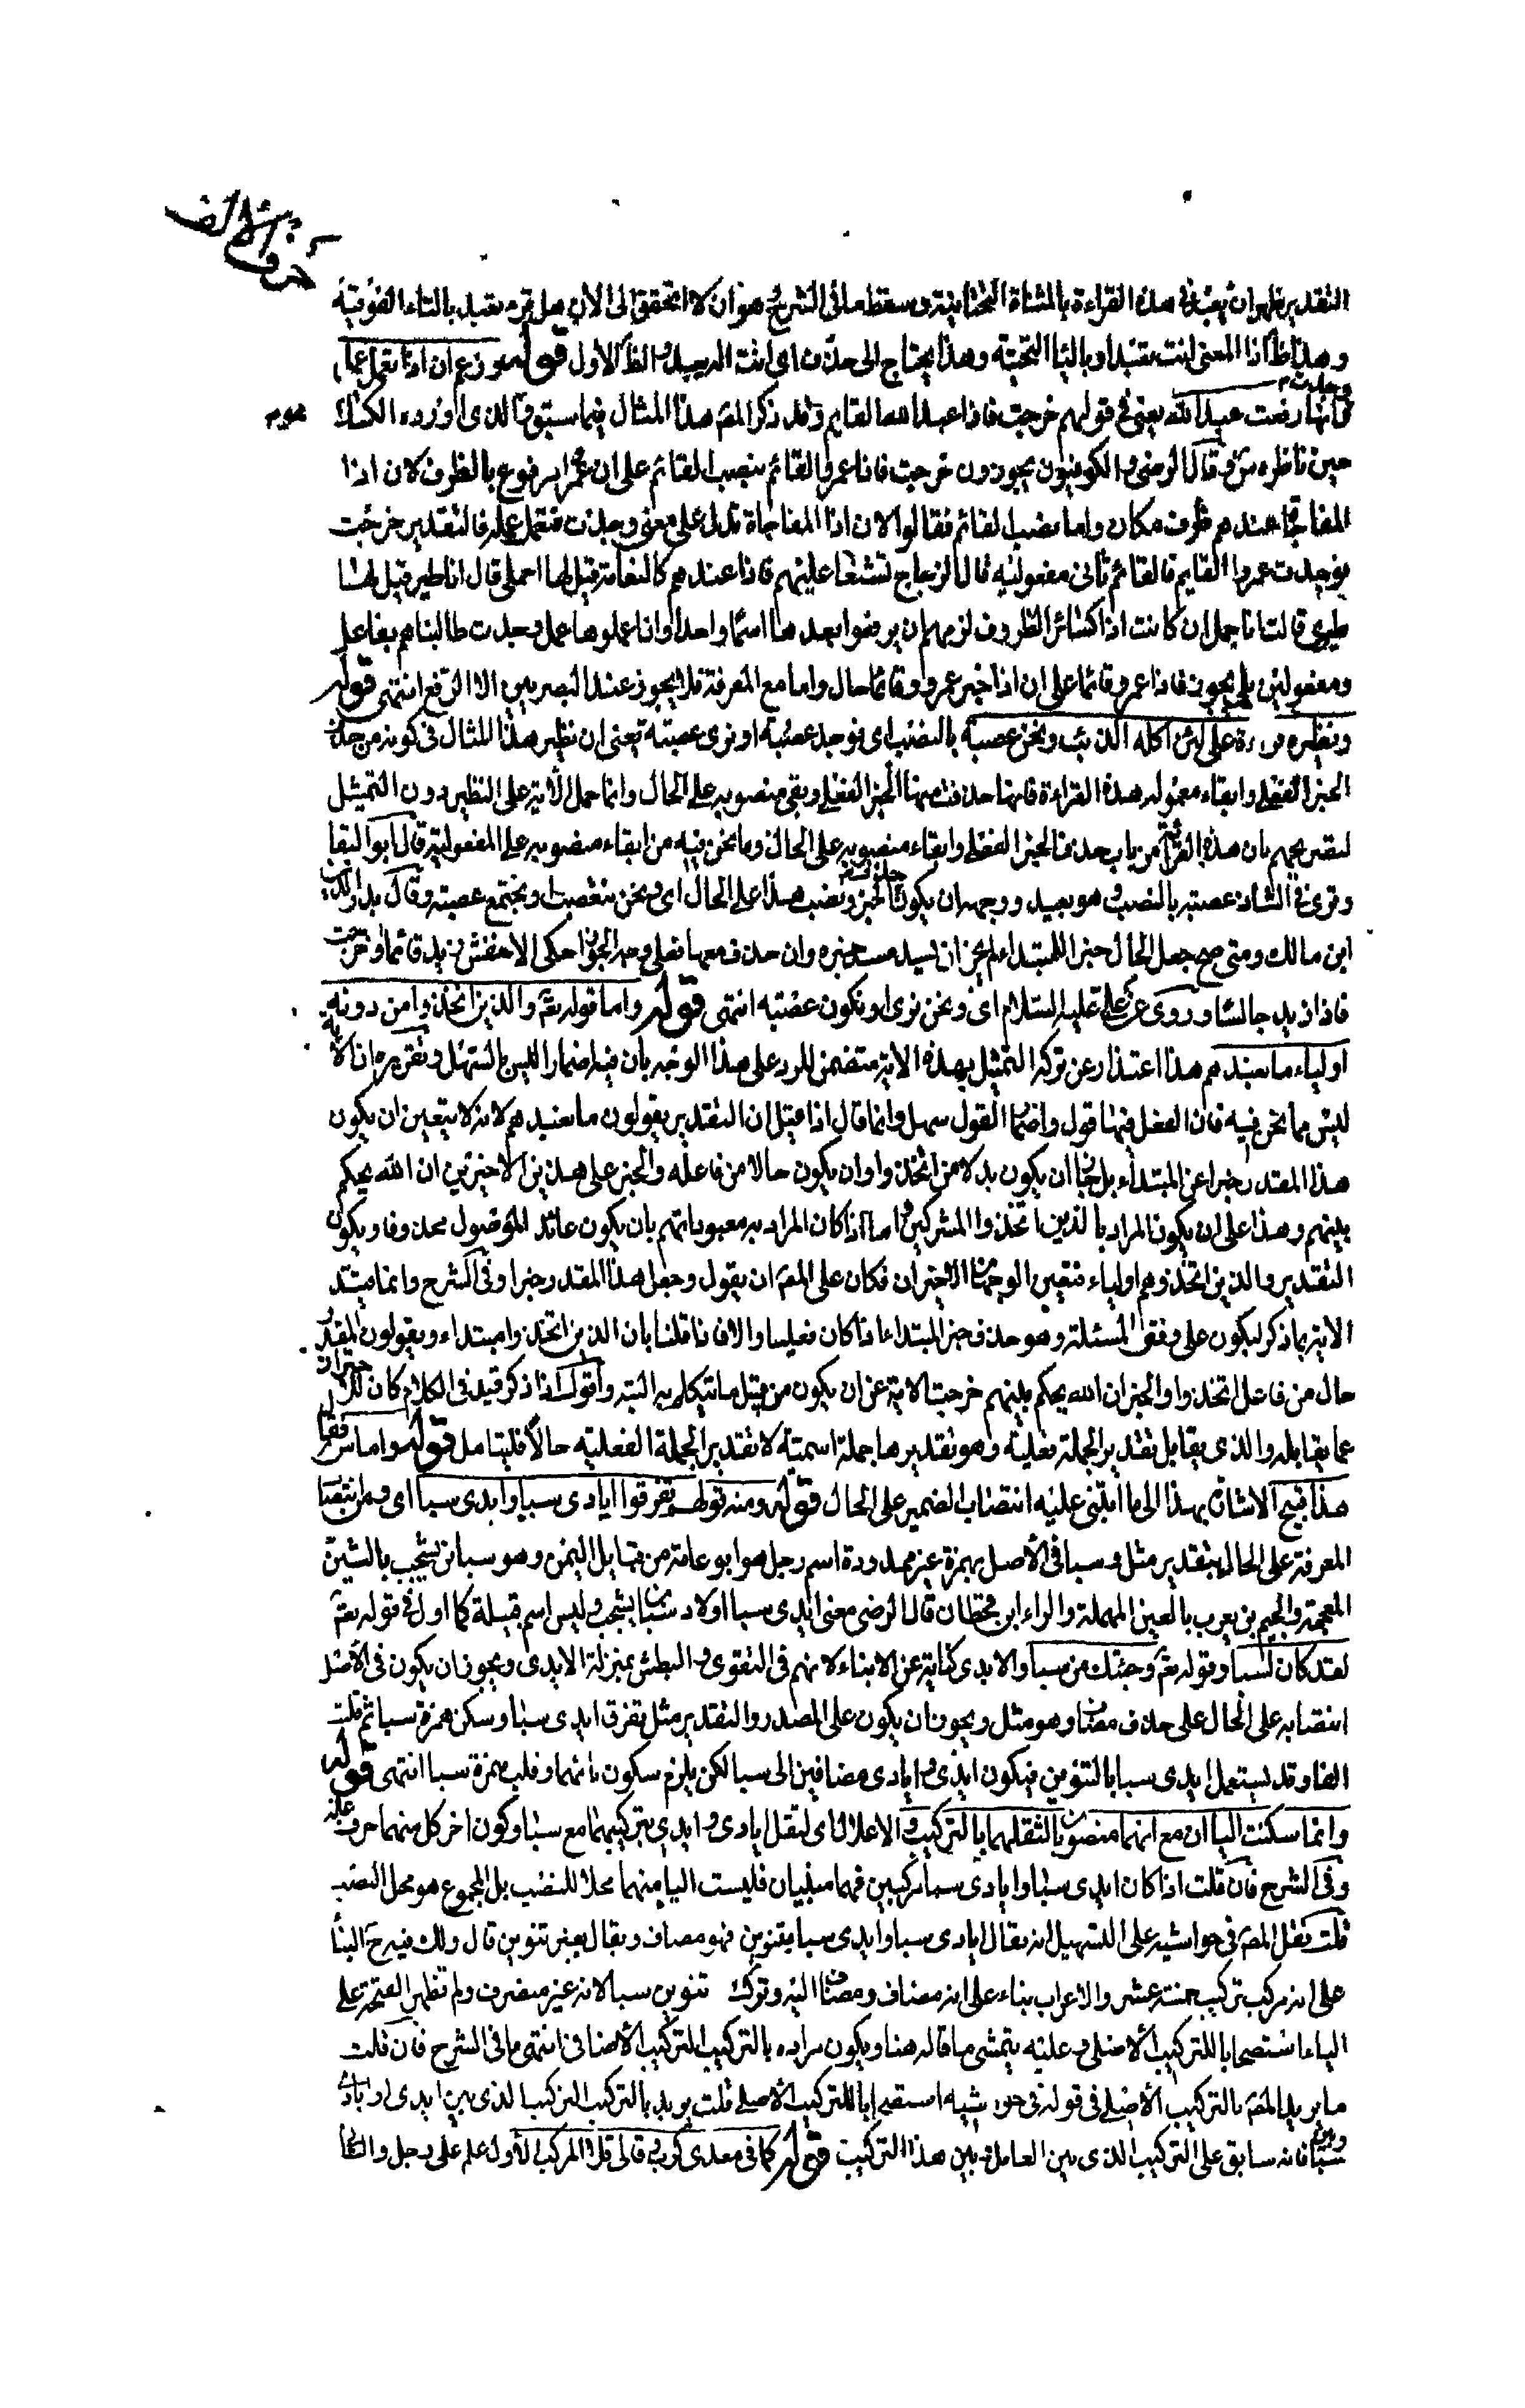 حرف الالف
التقدير ظهر ان يعبد في هذه القراءة بالمثناة التحتانية وسقط ما في الشرح هو ان لا اتحقق الى الآن هل قرء يعبد بالتاء الفوقية
وهذا ظ اذ المعنى انت تعبد او بالياء التحتية وهذا يحتاج الى حذف اى انت الذي يعبد والظ الاول قوله وزعم ان اذا تعمل عمل
وجدت
فانها رفعت عبد الله يعنى في قولهم خرجت فاذا عبد الله القايم وقد ذكر المص هذا المثال فيما سبق والذى اورده الكسائى
حين ناظره س وقال الرضى والكوفيون يجوزون خرجت فاذا عمرو القائم بنصب القائم على ان عمرا مرفوع بالظرف لان اذا
المفاجاة عندهم ظرف مكان واما نصب القائم فقالوا لان اذا المفاجاة تدل على معنى وجدت فتعمل عمله فالتقدير خرجت
فوجدت عمروا القايم فالقائم ثانى مفعوليه قال الزجاج تشنعا عليهم فاذا عندهم كالنعامة قيل لها احملى قال انا طير قيل لها
طيرى قالت انا جمل ان كانت اذا كسائر الظروف لزمهم ان يرفعوا بعدها اسما واحدا وان اعملوها عمل وجدت طالبناهم بفاعل
ومفعولين بلى يجوز فاذا عمرو قائما على ان اذا خبر عمرو وقائما حال واما مع المعرفة فلا يجوز عند البصريين الا الرفع انتهى قوله
ونظيره قراءة على لئن اكله الذئب ونحن عصبة بالنصب اى نوجد عصبة او نرى عصبة يعنى ان نظير هذا المثال في كونه من حذف
الخبر الفعلى وابقاء معموله هذه القراءة فانها حذفت منها الخبر الفعلى وبقى منصوبه على الحال وانما حمل الاية على النظير دون التمثيل
لتصريحهم بان هذه القراءة من باب حذف الخبر الفعلى وابقاء منصوبه على الحال وما نحن فيه من ابقاء منصوبه على المفعولية قال ابو البقا
وقرئ في الشاذ عصبة بالنصب وهو بعيد ووجهه ان يكون حذف الخبر ونصب هذا على الحال اى ونحن نتعصب او نجتمع عصبة وقال بدر الدين
ابن مالك ومتى صح جعل الحال خبرا للمبتداء لم يجز ان يسد مسد خبره وان حذف معها فعلى وجه الجواز حكى الاخفش زيد قائما وخرجت
فاذا زيد جالسا وروى عن على عليه السلام اى ونحن نرى او نكون عصبة انتهى قوله واما قوله تع والذين اتخذوا من دونه
اولياء ما نعبدهم هذا اعتذار عن تركه التمثيل بهذه الاية متضمن للرد على هذا الوجه بان فيه اضمارا ليس بالسهل وتقريره ان الاية
ليس مما نحن فيه فان الفعل فيها قول واضمار القول سهل وانما قال اذا قيل ان التقدير يقولون ما نعبدهم لانه لا يتعين ان يكون
هذا المقدر خبرا عن المبتداء بل جاز ان يكون بدلا من اتخذوا او ان يكون حالا من فاعله والخبر على هذين الاخيرين ان الله يحكم
بينهم وهذا على ان يكون المراد بالذين اتخذوا المشركين واما اذا كان المراد به معبوداتهم بان يكون عائد الموصول محذوفا ويكون
التقدير والذين اتخذوهم اولياء فتعين الوجهان الاخيران فكان على المص ان يقول وجعل هذا المقدر خبرا وفى الشرح وانما قيد
الاية بما ذكر ليكون على وفق المسئلة وهو حذف خبر المبتداء اذا كان فعليا والا فاذا قلنا بان الذين اتخذوا مبتداء ويقولون المقدر
حال من فاعل اتخذوا والخبر ان الله يحكم بينهم خرجت الاية عن ان يكون من قبيل ما نتكلم به البتة واقول اذا ذكر قيد في الكلام كان احترازا
عما يقابله والذى يقابل تقدير الجملة فعلية وهو تقديرها جملة اسمية لا تقدير الجملة الفعلية حالا فليتامل قوله واما س فقال
هذا قبيح الاشارة بهذا الى ما ابتنى عليه انتصاب الضمير على الحال قوله ومنه قولهم تفرقوا ايادى سبا وايدى سبا اى ومن انتصاب
المعرفة على الحال بتقدير مثل وسبا في الاصل بهمزة غير ممدودة اسم رجل هو ابو عامة من قبايل اليمن وهو سبا بن يشجب بالشين
المعجمة والجيم بن يعرب بالعين المهملة والراء ابن قحطان قال الرضى معنى ايدى سبا اولاد سبا بن يشجب وليس اسم قبيلة كما اول في قوله تع
لقد كان لسبا وقوله تع وجئتك من سبا والايدى كناية عن الابناء لانهم في التقوى والبطش بمنزلة الايدى ويجوز ان يكون في الاصل
انتصابه على الحال على حذف مضاف وهو مثل ويجوز ان يكون على المصدر والتقدير مثل تفرق ايدى سبا وسكن همزة سبا ثم قلبت
الفا وقد يستعمل ايدى سبا بالتنوين فيكون ايدى وايادى مضافين الى سبا لكن يلزم سكون يائهما وقلب همزة سبا انتهى قوله
وانما سكنت الياان مع انهما منصوبان لثقلهما بالتركيب والاعلال اى لثقل ايادى وايدى بتركيبهما مع سبا وكون اخر كل منهما حرف علة
وفى الشرح فان قلت اذا كان ايدى سبا وايادى سبا مركبين فهما مبنيان فليست اليا منهما محلا للنصب بل المجموع هو محل النصب
قلت نقل المص في حواشيه على التسهيل انه يقال ايادى سبا وايدى سبا بتنوين فهو مضاف ويقال بغير تنوين قال ولك فيه ح البناء
على انه مركب تركيب خمسة عشر والاعراب بناء على انه مضاف ومضاف اليه وترك تنوين سبا لانه غير منصرف ولم تظهر الفتحة على
الياء استصحابا للتركيب الاصلى وعليه يتمشى ما قاله هنا ويكون مراده بالتركيب التركيب الاضافى انتهى ما في الشرح فان قلت
ما يريد المص بالتركيب الاصلى في قوله في حواشيه استصحابا للتركيب الاصلى قلت يريد بالتركيب التركيب الذى بين ايدى او ايادى
وبين سبا فانه سابق على التركيب الذى بين العامل وبين هذا التركيب قوله كما في معدى كرب وقالى قلا المركب الاول علم على رجل والثانى